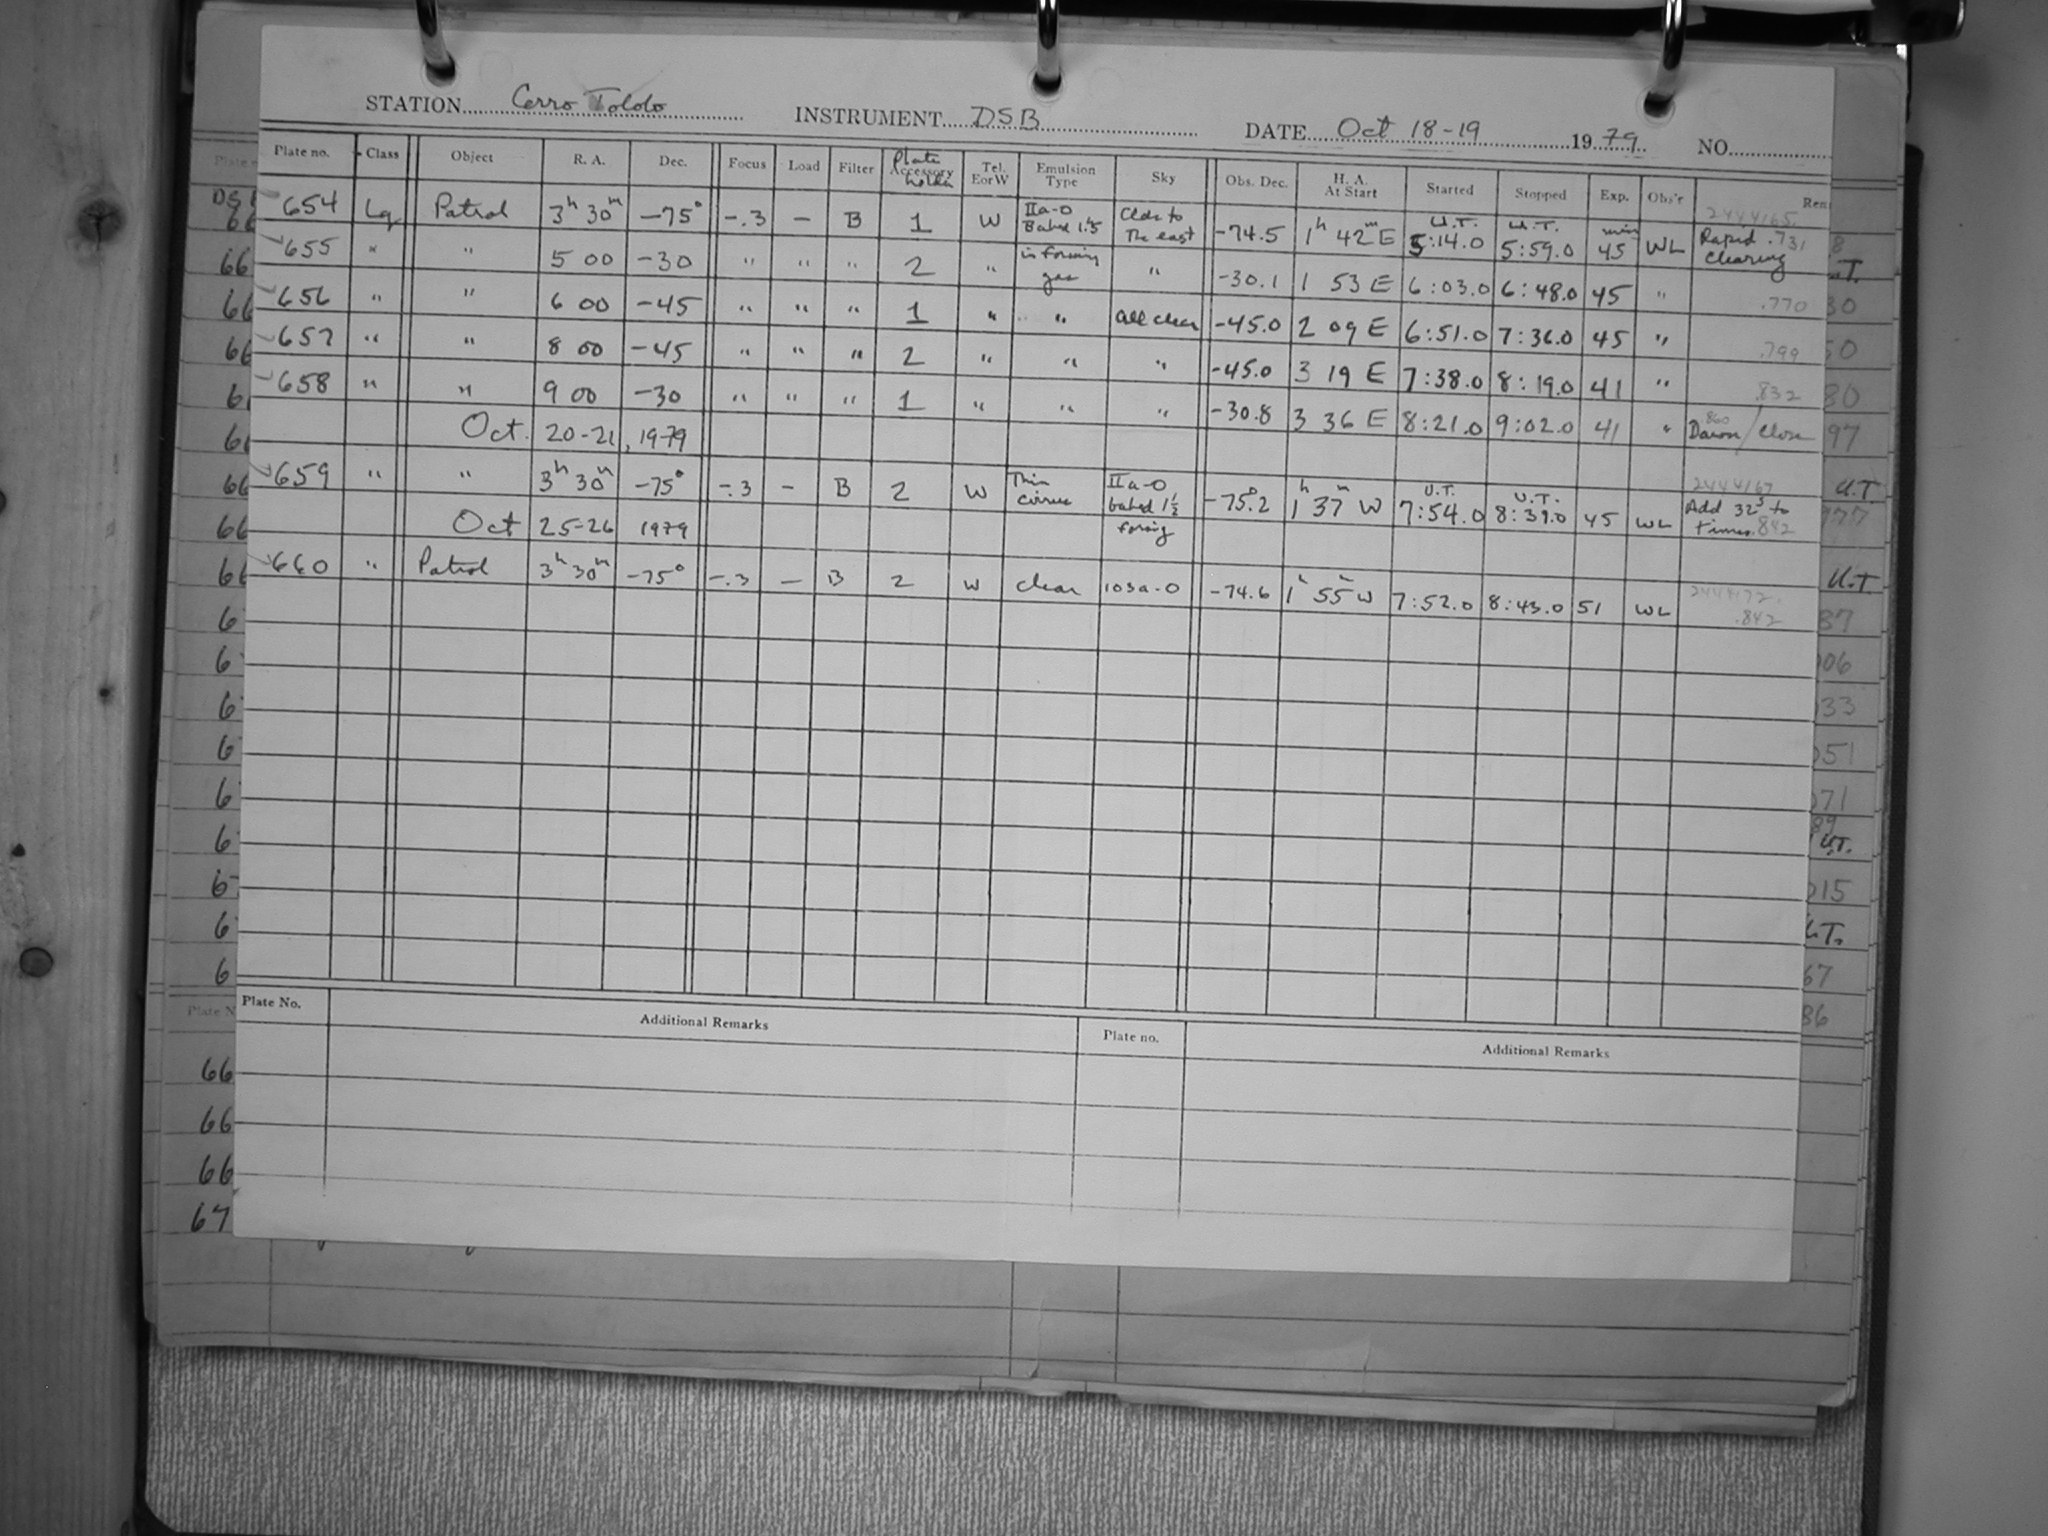 STATION Cerro Tololo INSTRUMENT DSB DATE Oct 18-19 1979 NO.
Plate no. Class Object R. A. Dec. Focus Load Filter Plate Accessory holder Tel. E or W Emulsion Type Sky Obs. Dec. H. A. At Start Started Stopped Exp. Obs'r Rem
654 Lg Patrol 3h 30m -75° -.3 - B 1 W IIa-O Baked 1.5 Clear to the east -74.5 1h 42m E U.T. 5:14.0 U.T. 5:59.0 min 45 WL 2444165. Rapid .731 clearing
655 " " 5 00 -30 " " " 2 " in forming gas " -30.1 1 53 E 6:03.0 6:48.0 45 " .770
656 " " 6 00 -45 " " " 1 " " all clear -45.0 2 09 E 6:51.0 7:36.0 45 " .799
657 " " 8 00 -45 " " " 2 " " " -45.0 3 19 E 7:38.0 8:19.0 41 " .832
658 " " 9 00 -30 " " " 1 " " " -30.8 3 36 E 8:21.0 9:02.0 41 " .860 Dawn / Close
Oct. 20-21, 1979
659 " " 3h 30m -75° -.3 - B 2 W Thin cirrus IIa-O baked 1½ forming -75°.2 1h 37m W U.T. 7:54.0 U.T. 8:39.0 45 WL 2444167 Add 32s to times .842
Oct 25-26 1979
660 " Patrol 3h 30m -75° -.3 - B 2 W clear 103a-O -74.6 1h 55m W 7:52.0 8:43.0 51 WL 2444172. .842
Plate No. Additional Remarks Plate no. Additional Remarks